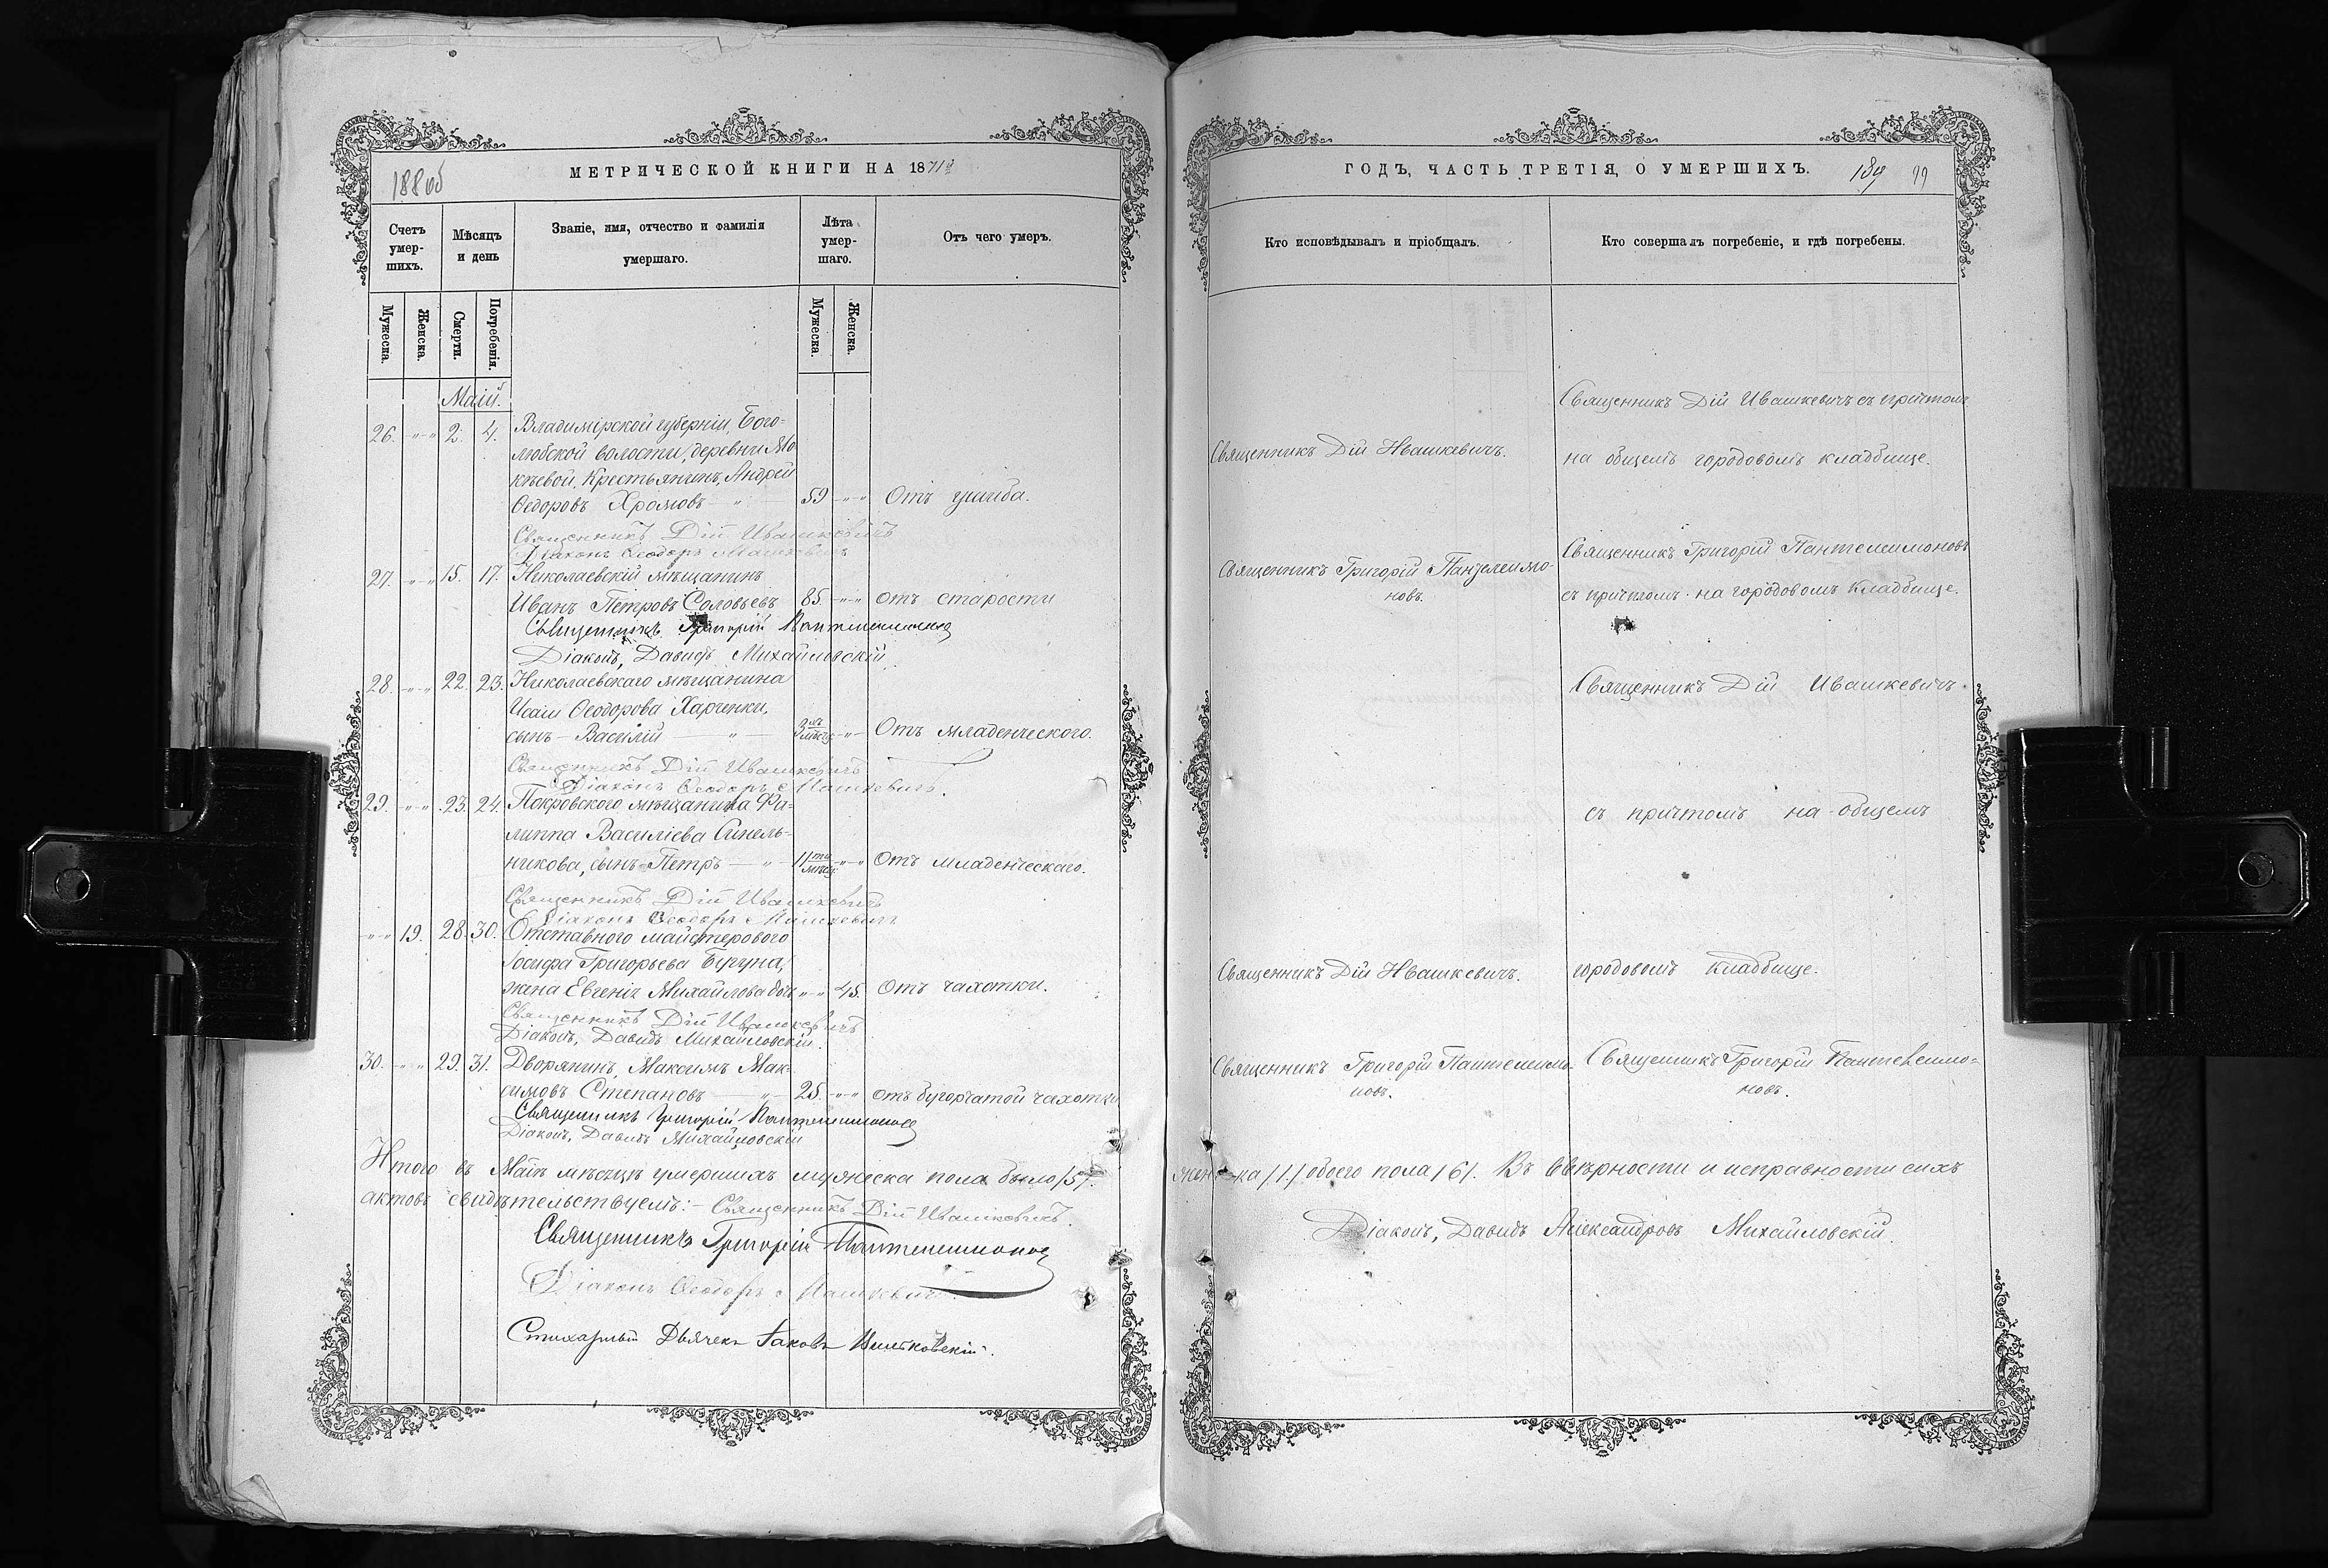 МЕТРИЧЕСКОЙ КНИГИ НА 1871й
188об
Счетъ умер-шихъ.
Мѣсяцъ и день
Званіе, имя, отчество и фамилія умершаго.
Лѣта умер-шаго.
Отъ чего умеръ.
Мужеска.
Женска.
Смерти.
Погребенія.
Мужеска.
Женска.
Май.
26. -"- 2. 4. Владимірской губерніи, Бого-
любской волости, деревни Мо-
кѣевой, Крестьянинъ, Андрей
Ѳедоровъ Храмовъ - " - 59 -"- Отъ ушиба.
Священникъ Дій Ивашкевичъ
Діаконъ Ѳеодоръ Машкевичъ
27. -"- 15. 17. Николаевскій мѣщанинъ
Иванъ Петровъ Соловьевъ 85. -"- отъ старости
Священникъ Григорій Пантелеимоновъ
Діаконъ, Давидъ Михайловскій
28. -"- 22. 23. Николаевскаго мѣщанина
Исаіи Ѳеодорова Харченки,
сынъ - Василій - " - 3 мѣсц. -"- Отъ младенческого.
Священникъ Дій Ивашкевичъ
Діаконъ Ѳеодоръ Машкевичъ.
29. -"- 23. 24. Покровского мѣщанина Фи-
липпа Василіева Синель-
никова, сынъ - Петръ - " - 11ти мѣсц. -"- Отъ младенческаго.
Священникъ Дій Ивашкевичъ
Діаконъ Ѳеодоръ Машкевичъ
-"- 19. 28. 30. Отставного майстерового
Іосифа Григорьева Бугуна,
жена Евгенія Михайлова дочь -"- 45. Отъ чахотки.
Священникъ Дій Ивашкевичъ
Діаконъ, Давидъ Михайловскій.
30. -"- 29. 31. Дворянинъ, Максимъ Мак-
симовъ Степановъ - " - 25. -"- отъ бугорчатой чахотки
Священникъ Григорій Пантелеимоновъ
Діаконъ, Давидъ Михайловскій
Итого въ Маѣ мѣсяцѣ умершихъ мужеска пола было /5/.
актовъ свидѣтельствуемъ: - Священникъ Дій Ивашкевичъ.
Священникъ Григорій Пантелеимоновъ
Діаконъ Ѳеодоръ Машкевичъ
Стихарный Дьячекъ Іаковъ
ГОДЪ, ЧАСТЬ ТРЕТІЯ, О УМЕРШИХЪ.
189 99
Кто исповѣдывалъ и пріобщалъ.
Кто совершалъ погребеніе, и гдѣ погребены.
Священникъ Дій Ивашкевичъ съ причтомъ
Священникъ Дій Ивашкевичъ.
на общемъ городовомъ кладбище.
Священникъ Григорій Пантелеимоновъ
Священникъ Григорій Пантелеимо-
новъ.
съ причтомъ на городовомъ Кладбище.
Священникъ Дій Ивашкевичъ.
съ причтомъ на общемъ
Священникъ Дій Ивашкевичъ.
городовомъ Кладбище.
Священникъ Григорій Пантелеимо-
новъ.
Священникъ Григорій Пантелеимо-
новъ.
женска /1./ обоего пола /6/. Въ ввѣрности и исправности сихъ
Діаконъ, Давидъ Александровъ Михайловскій.